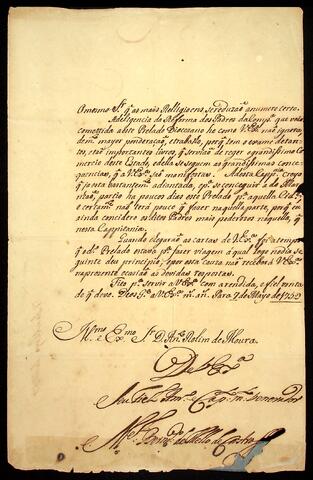 O mesmo Sr. q̃ as mais Religioens se reduzaõ a numero certo.
A deligencia da Refórma dos Padres da Comp.ª que vejo
cometida a este Prelado Diocesano he como V. Ex.ª naõ ignora,
de m.ª mayor ponderaçaõ, e trabalho, porq̃ tem o exame de tan-
tos, e taõ importantes livros, q̃ servem de reger o grandissimo Co-
mercio deste Estado, e della se seguem as grandissimas conse-
quencias, q̃ a V. Ex.ª saõ manifestas. Nesta Cap.nia creyo
q̃ ja esta bastantem.te adiantada, e p.ª se conseguir a do Mara-
nhaõ, partio ha poucos dias este Prelado p.ª aquella Cid.e
e certam.te naõ terá pouco q̃ fazer naquella parte, porq̃ eu
ainda considero a estes Padres mais poderosos naquella, q̃
nesta Cappitania.
Quando chegaraõ as cartas de V. Ex.ª foy a tempo
q̃ o d.º Prelado estava p.ª fazer viagem á qual logo no dia se-
guinte deu principio; e por essa cauza naõ receberá V. Ex.ª
na prezente ocaziaõ as devidas respostas.
Fico p.ª servir a V. Ex.ª com a rendida, e fiel vonta-
de q̃ devo. Deos g.e a V. Ex.ª m. an. Pará 7 de Mayo de 1759
Illmo. e Exmo. Sr. D. Ant.º Rolim de Moura.
De V. Ex.ª
e Cap.
M.el Bern.do de Mello de Castro